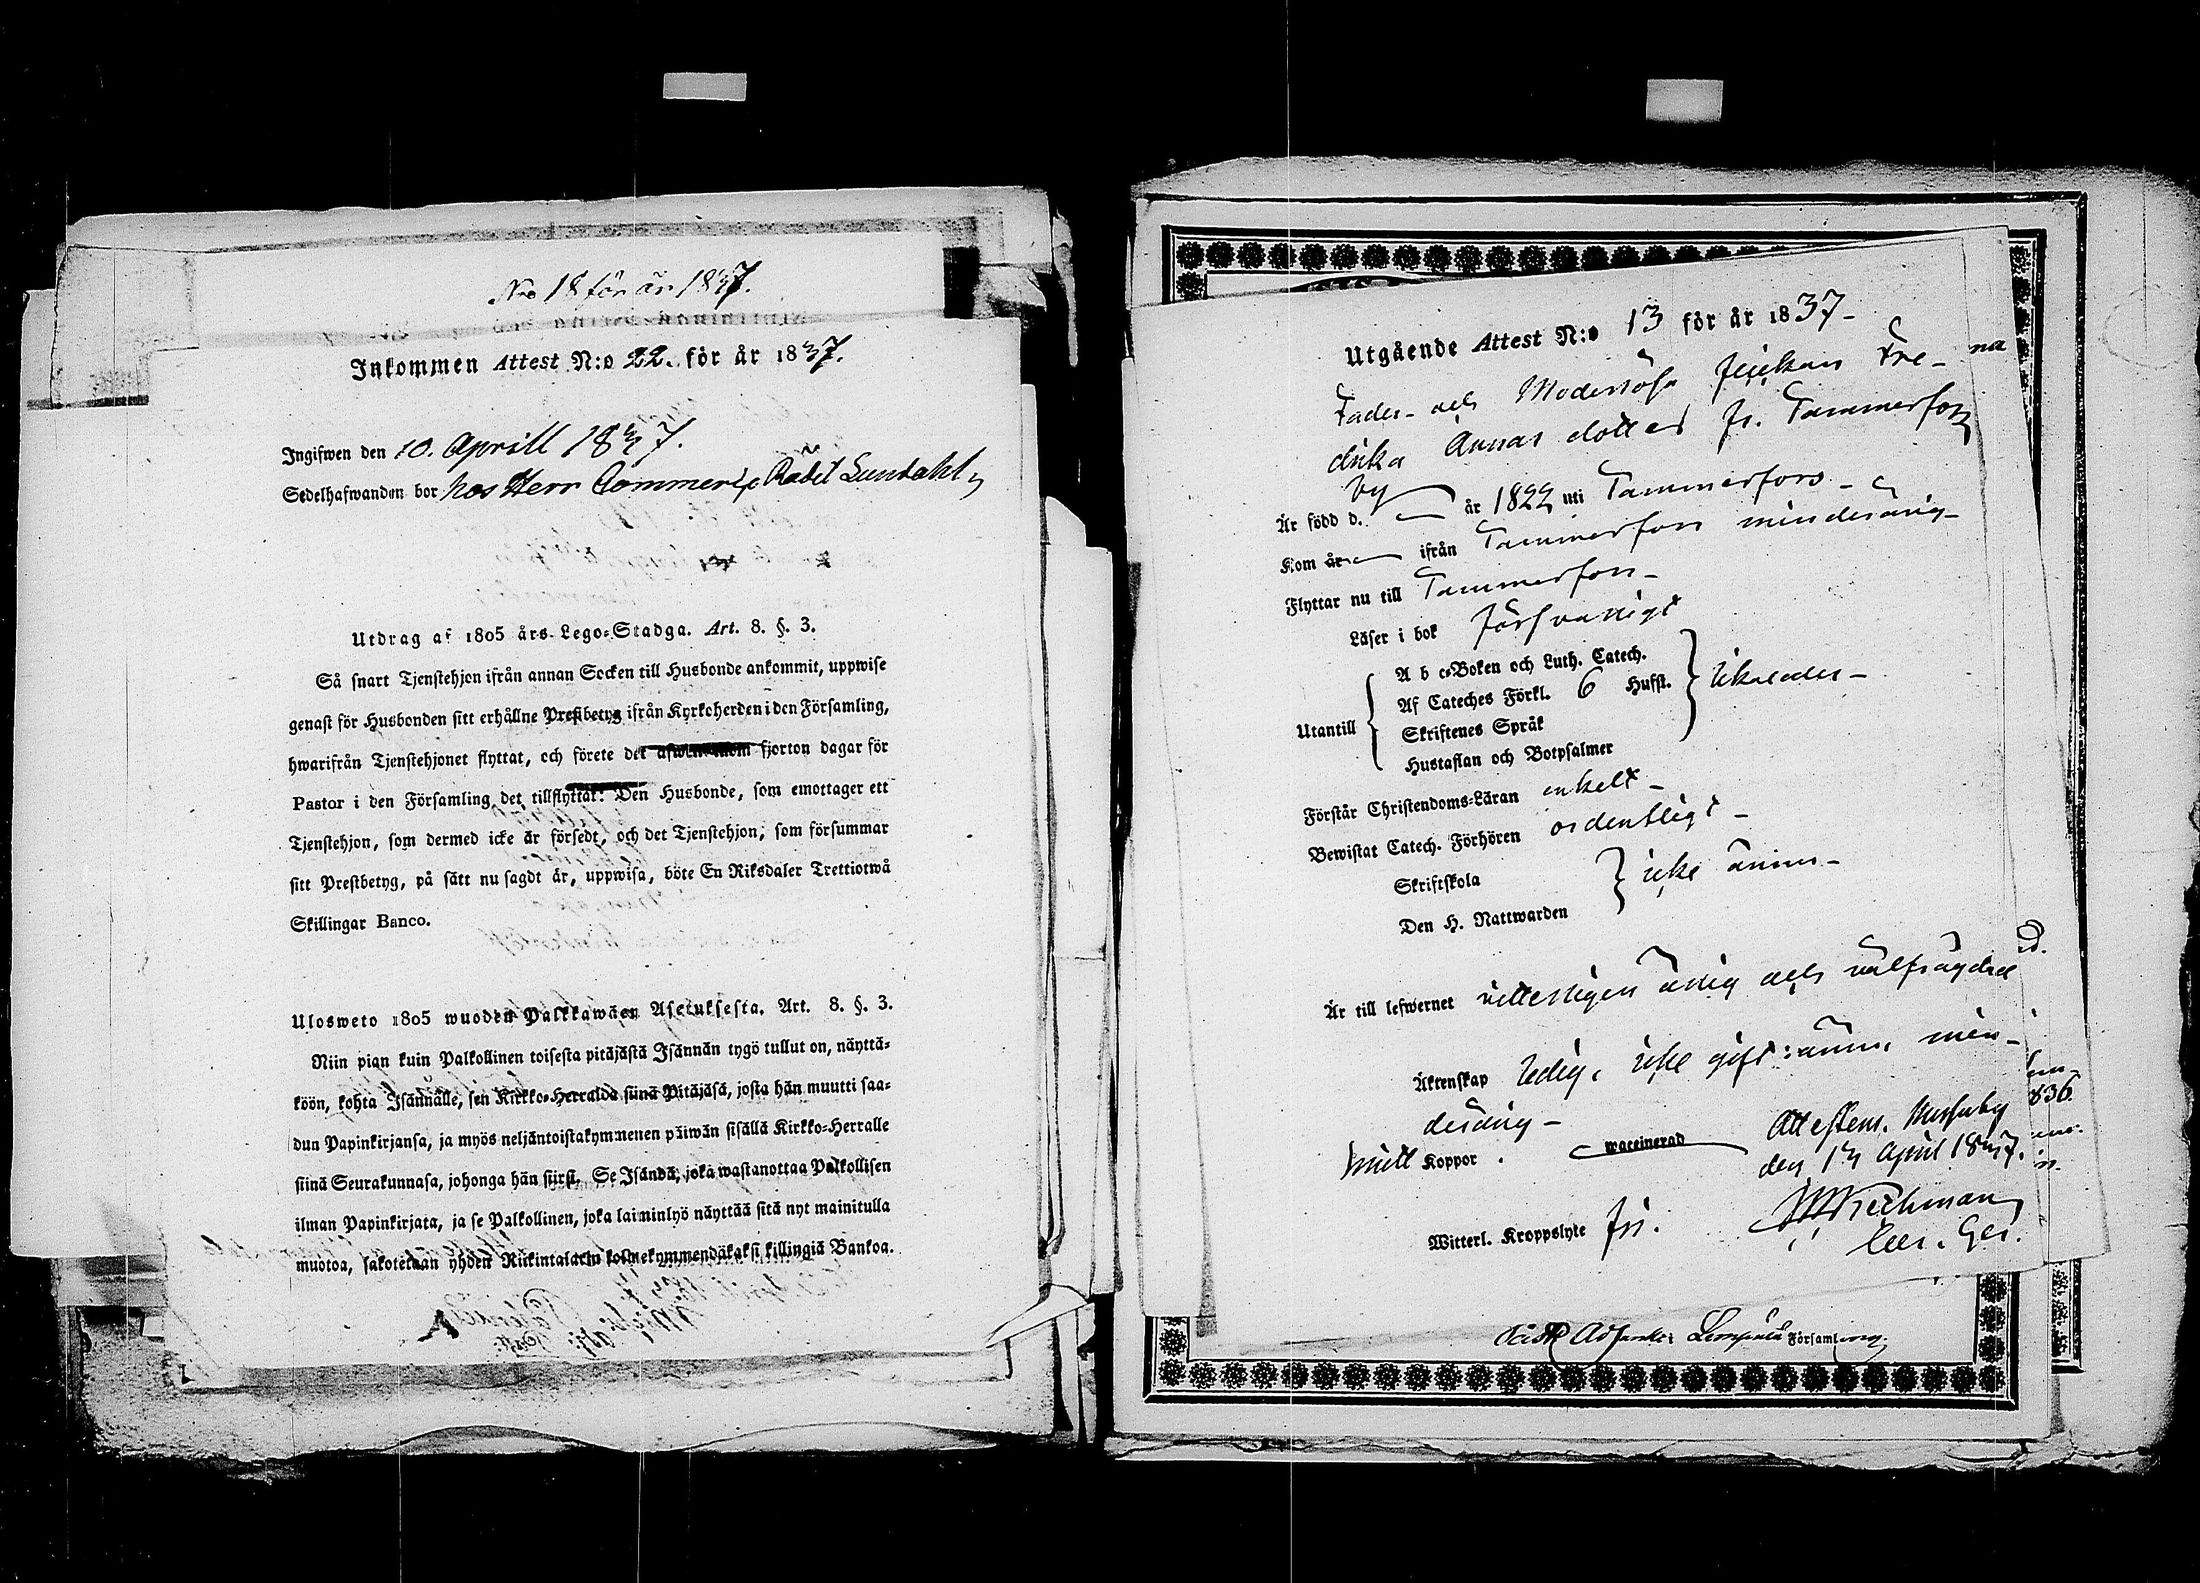 No 18 för år 1837.
Inkommen Attest N:o 22. för år 1837.
Ingifwen den 10. Aprill 1837.
Sedelhafwanden bor hos Herr Commerce Rådet Sundahl
Utdrag af 1805 års Lego-Stadga. Art. 8. §. 3.
Så snart Tjenstehjon ifrån annan Socken till Husbonde ankommit, uppwise
genast för Husbonden sitt erhållne Prestbetyg ifrån Kyrkoherden i den Församling,
hwarifrån Tjenstehjonet flyttat, och förete det äfwen inom fjorton dagar för
Pastor i den Församling det tillflyttat. Den Husbonde, som emottager ett
Tjenstehjon, som dermed icke är försedt, och det Tjenstehjon, som försummar
sitt Prestbetyg, på sätt nu sagdt är, uppwisa, böte En Riksdaler Trettiotwå
Skillingar Banco.
Ulosweto 1805 wuoden Palkkawäen Asetuksesta. Art. 8. §. 3.
Niin pian kuin Palkollinen toisesta pitäjästä Isännän tygö tullut on, näyttä-
köön, kohta Isännälle, sen Kirkko-Herralda siinä Pitäjäsä, josta hän muutti saa-
dun Papinkirjansa, ja myös neljäntoistakymmenen päiwän sisällä Kirkko-Herralle
siinä Seurakunnasa, johonga hän siirsi. Se Isändä, joka wastanottaa Palkollisen
ilman Papinkirjata, ja se Palkollinen, joka laiminlyö näyttää sitä nyt mainitulla
muotoa, sakotetaan yhden Riikintalarin kolmekymmendäkaksi killingiä Bankoa.
Utgående Attest N:o 13 för år 1837-
Fader- och Moderlösa flickan Fre-
drika Annas dotter fr. Tammerfors
by
Är född d. år 1822 uti Tammerfors -
Kom år ifrån Tammerfors minderårig-
Flyttar nu till Tammerfors-
Läser i bok försvarligt
A b c-Boken och Luth. Catech.
Af Cateches Förkl. 6 Hufst.
Utantill
Skriftenes Språk
Hustaflan och Botpsalmer
Förstår Christendoms-Läran enkelt -
Bewistat Catech. Förhören ordentligt -
Skriftskola icke ännu -
Den H. Nattwarden
Är till lefwernet veterligen ärlig och välfrägdad
Äktenskap ledig, icke gift ännu, min-
derårig -
haft Koppor . waccinerad
Attesteras. Messuby
den 13 April 1837.
Witterl. Kroppslyte fri.
Församling.